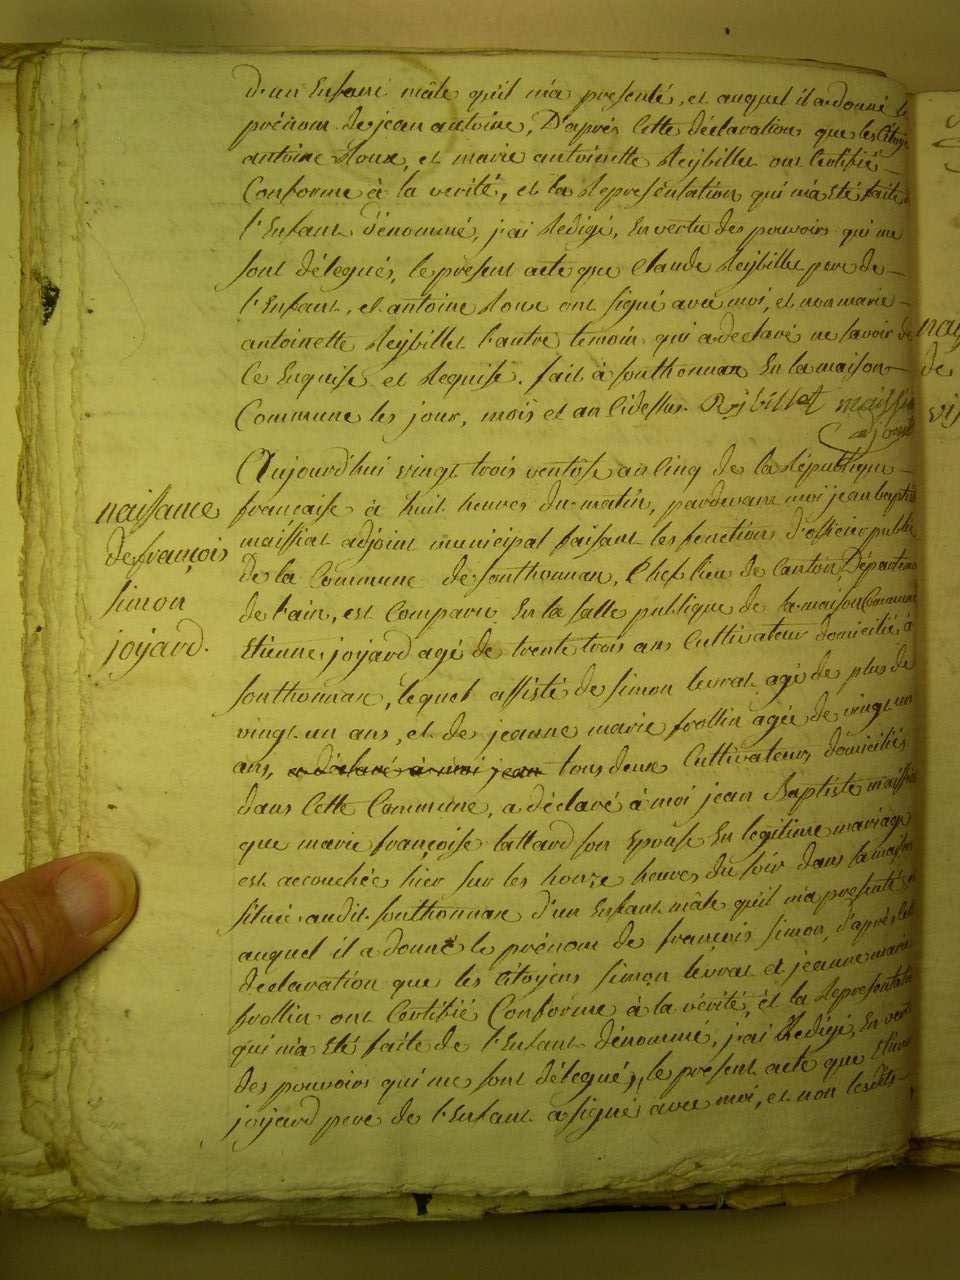 d'un Enfant mâle qu'il m'a presenté, et auquel il a donné le
prénom de jean antoine, D'après Cette déclaration que les Citoy
antoine Roux, et marie antoinette Reybillet ont Certifié
Conforme à la verité, et la Representation qui m'a Eté faite
l'Enfant dénommé, j'ai Redigé, En vertu des pouvoirs qui me
sont délegués, le présent acte que Claude Reybillet pere de
l'Enfant, et antoine Roux ont signé avec moi, et non marie
antoinette Reybillet l'autre temoin qui a declaré ne savoir de
Ce Enquise et Requise. fait à Sonthonnax En la maison
Commune les jour, mois et an Cidessus. Rejbillet maissia
adjoint
Aujourd'hui vingt trois ventôse an Cinq de la République
naissance
de françois
simon
joyard.
française à huit heures du matin, pardevant moi jean baptiste
maissiat adjoint municipal faisant les fonctions d'officier public
de la Commune de Sonthonnax, Chef lieu de Canton, Départeme
de l'ain, est Comparu En la salle publique de la maison Commune
Etienne joyard agé de trente trois ans Cultivateur domicilié à
Sonthonnax, lequel assisté de simon levrat agé de plus de
vingt un ans, et de jeanne marie frollin agée de vingt un
ans, a déclaré à moi jean tous deux Cultivateurs domiciliés
dans Cette Commune, a déclaré à moi jean Baptiste maissiat
que marie françoise tattard son Epouse En legitime mariage
est accouchée hier sur les honze heures du soir dans sa maison
située audit Sonthonnax d'un Enfant mâle qu'il m'a presenté, et
auquel il a donné le prénom de françois simon, d'après Cette
declaration que les Citoyens simon levrat et jeanne marie
frollin ont Certifié Conforme à la vérité, et la Representation
qui m'a Eté faite de l'Enfant dénommé, j'ai Redigé, En vertu
des pouvoirs qui me sont délegués, le présent acte que Etienne
joyard pere de l'Enfant a signé avec moi, et non lesdits